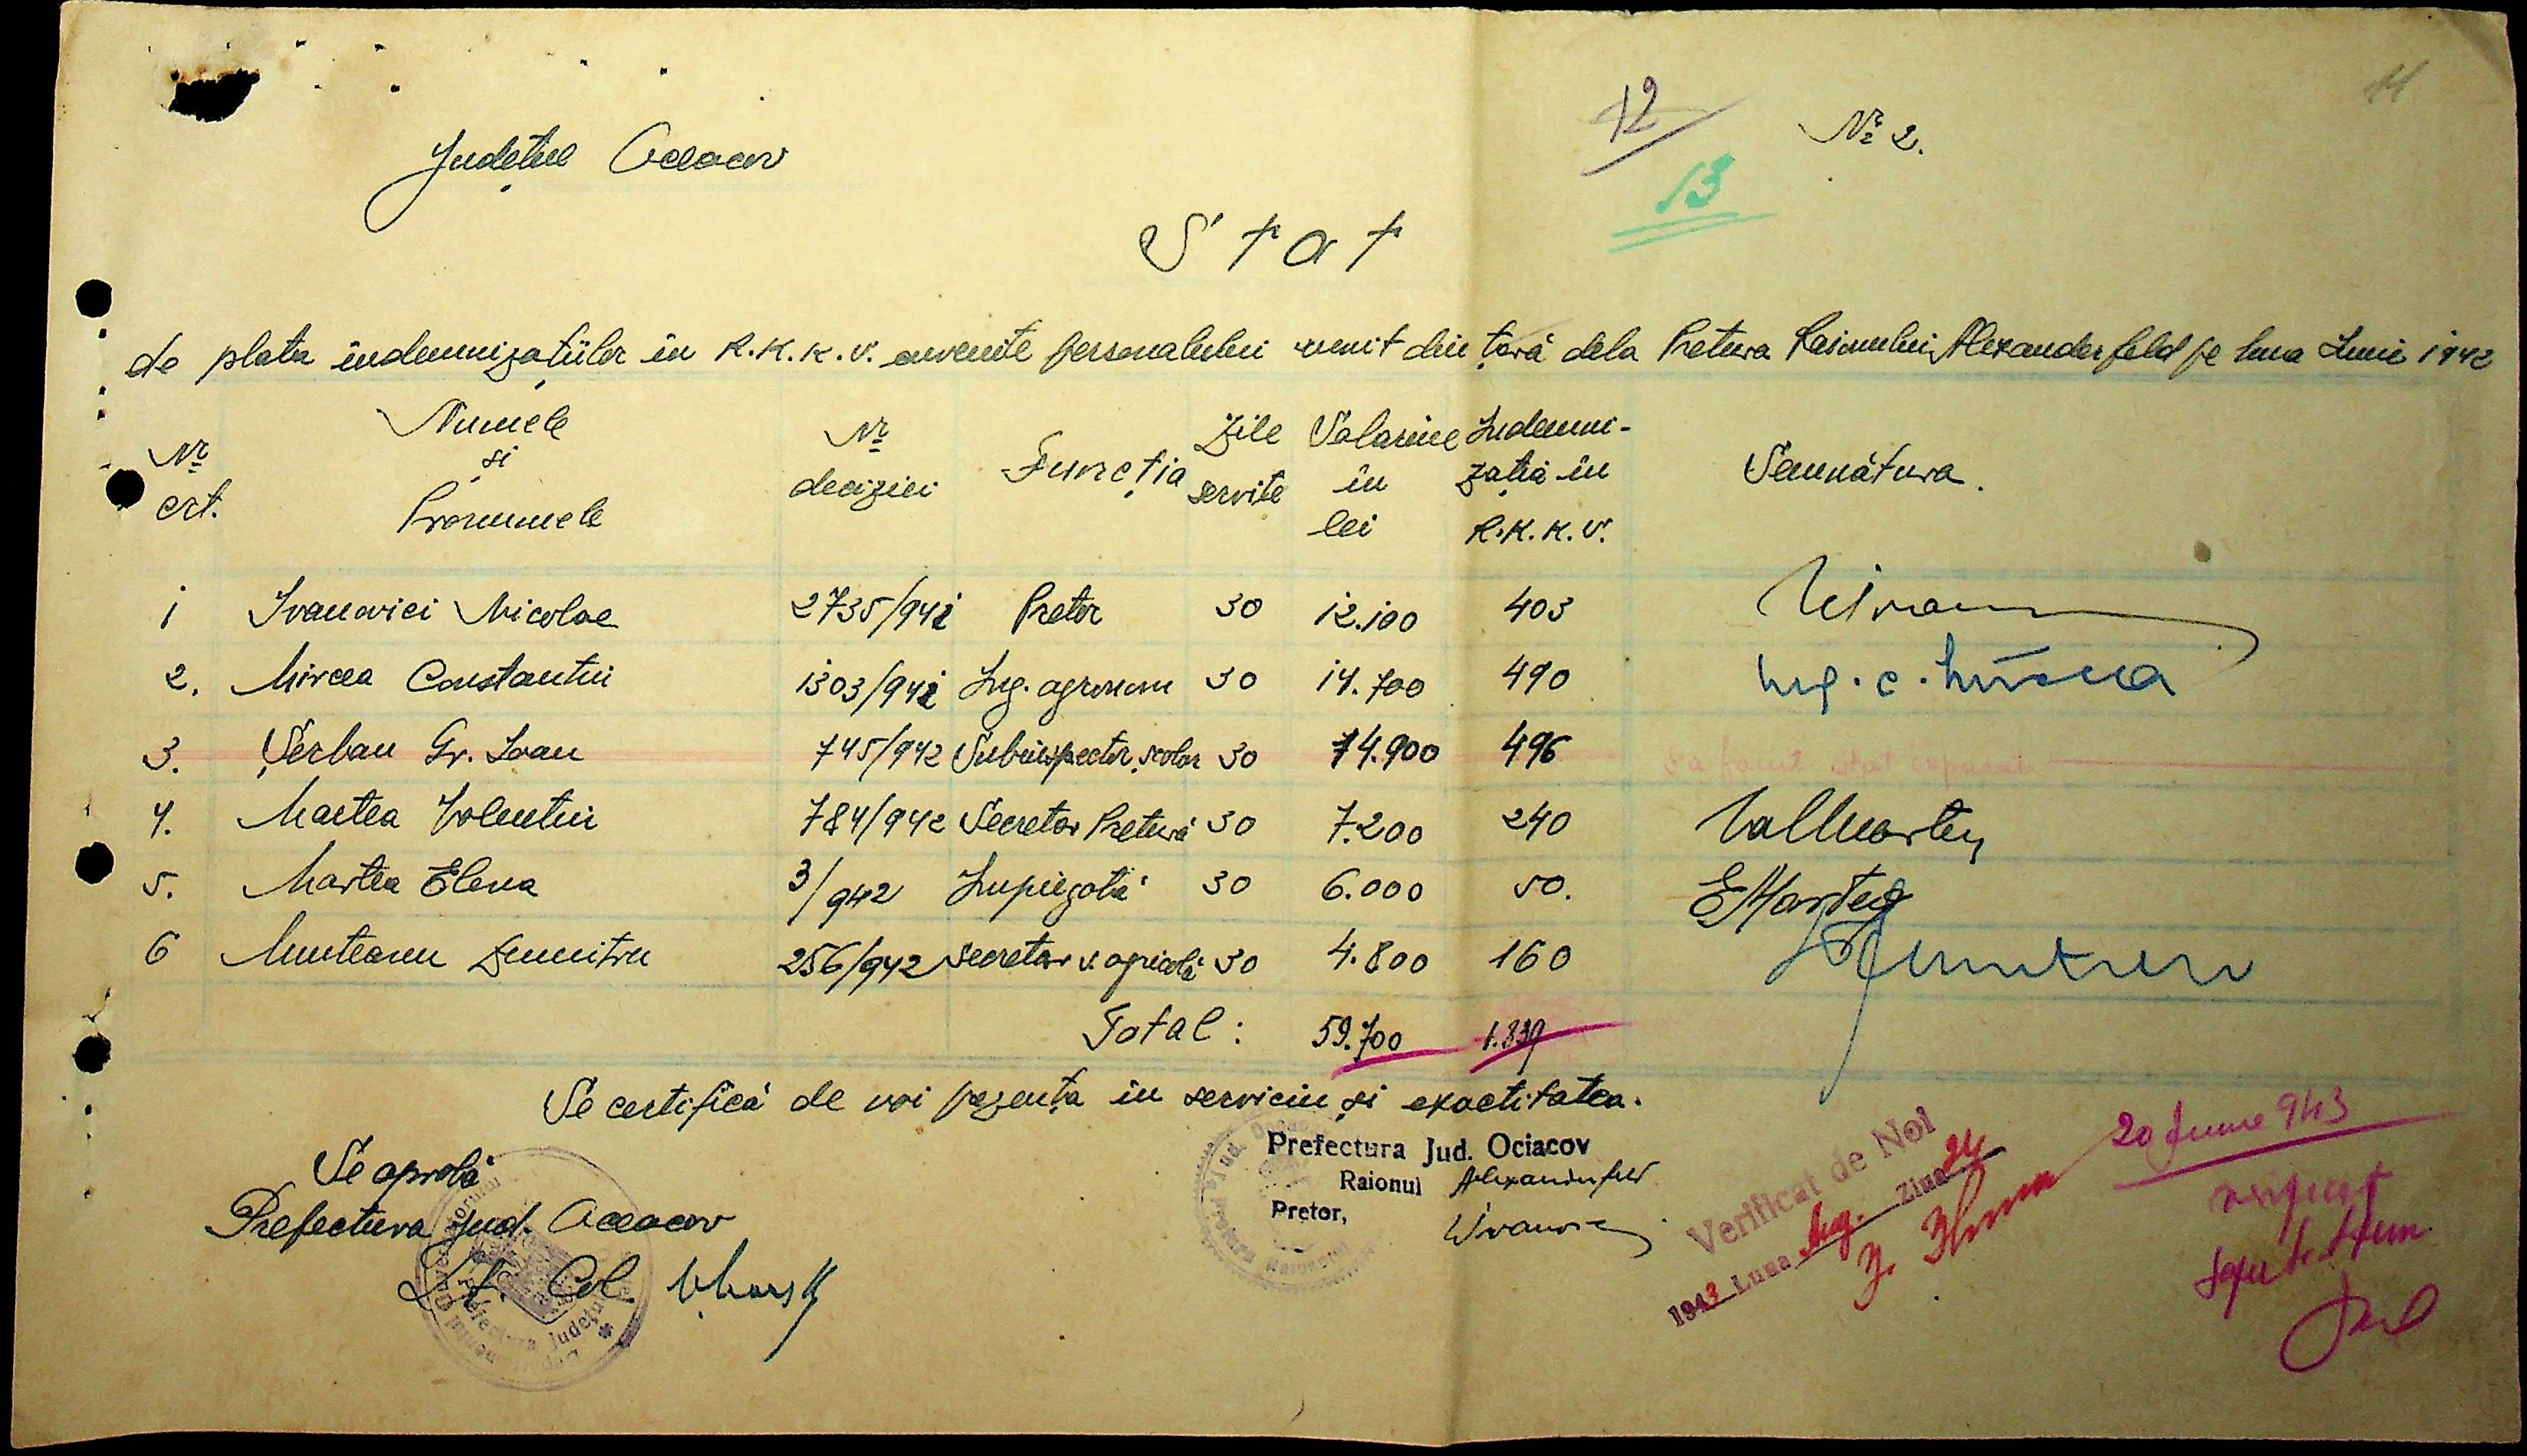 11
12
Nr 2.
13
Județul Oceacov
Stat
de plata indemnizațiilor în R.K.K.V. cuvenite personalului venit din țară dela Pretura Raionului Alexanderfeld pe luna Iunie 1942
Nr crt. Numele și Pronumele Nr deciziei Funcția Zile servite Salariul în lei Indemnizația în R.K.K.V. Semnătura.
1 Ivanovici Nicolae 2735/942 Pretor 30 12.100 403
2. Mircea Constantin 1303/942 Ing. agronom 30 14.700 490 Ing. C. Mircea
3. Șerban Gr. Ioan 745/942 Subinspector școlar 30 14.900 496 S'a făcut stat separat
4. Martea Valentin 784/942 Secretar Pretură 30 7.200 240 Val Martea
5. Martea Elena 3/942 Impiegată 30 6.000 50. E Martea
6 Munteanu Dumitru 256/942 Secretar v. agricolă 30 4.800 160
Total: 59.700 1.839
Se certifică de noi prezența în serviciu și exactitatea.
Se aprobă
Prefectura Jud. Oceacov
Lt. Col.
Prefectura Jud. Ociacov
Raionul Alexanderfeld
Pretor, NIvanov
Verificat de Noi
1943 Luna Aug. Ziua 24
20 Iunie 943